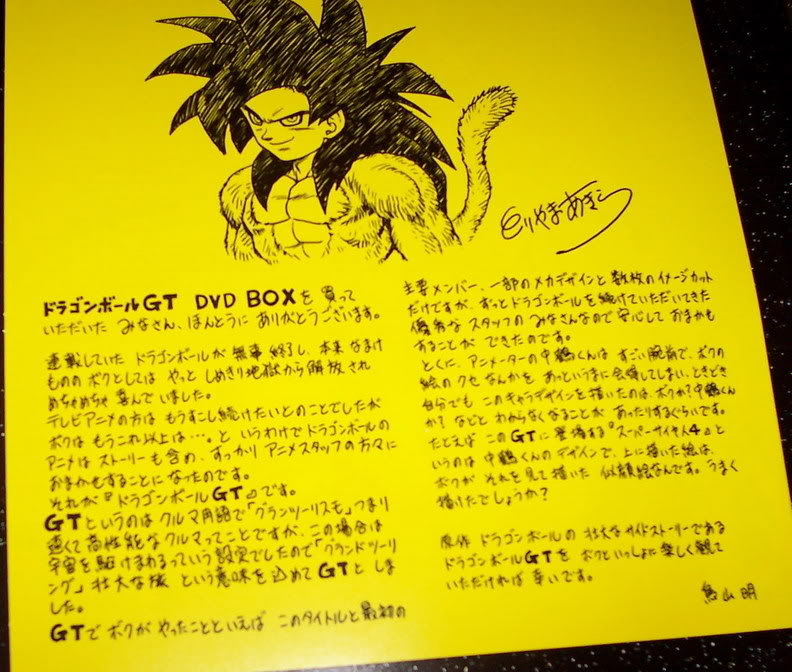 とりやまあきら
ドラゴンボールGT DVD BOXを 買って
いただいた みなさん、ほんとうに ありがとうございます。
連載していた ドラゴンボールが 無事 終了し、本来 なまけ
ものの ボクとしては やっと しめきり地獄から 解放され
めちゃめちゃ 喜んで いました。
テレビアニメの方は もうすこし続けたいとのことでしたが
ボクは もうこれ以上は…。と いうわけで ドラゴンボールの
アニメは ストーリーも含め、すっかり アニメスタッフの方々に
おまかもすることに なったのです。
それが『ドラゴンボールGT』です。
GTというのは クルマ用語で「グランツーリスモ」つまり
速くて高性能なクルマってことですが、この場合は
宇宙を駆けまわるっていう設定でしたので「グランドツーリ
ング」壮大な旅 という意味を込めて GTと しま
した。
GTで ボクが やったことといえば このタイトルと最初の
主要メンバー、一部のメカデザインと 数枚のイメージカット
だけですが、ずっとドラゴンボールを続けていただいてきた
優秀な スタッフの みなさんなので安心して おまかも
することが できたのです。
とくに、アニメーターの中鶴くんは すごい腕前で、ボクの
絵のクセ なんかを あっというまに会得してしまい、ときどき
自分でも このキャラデザインを描いたのは、ボクか?中鶴くん
か? などと わからなくなることが あったりするぐらいです。
たとえば このGTに 登場する『スーパーサイヤ人4』と
いうのは 中鶴くんのデザインで、上に描いた絵は、
ボクが それを見て描いた 似顔絵なんです。うまく
描けたでしょうか?
原作 ドラゴンボールの 壮大なサイドストーリーである
ドラゴンボールGTを ボクといっしょに楽しく観て
いただければ 幸いです。
鳥山明